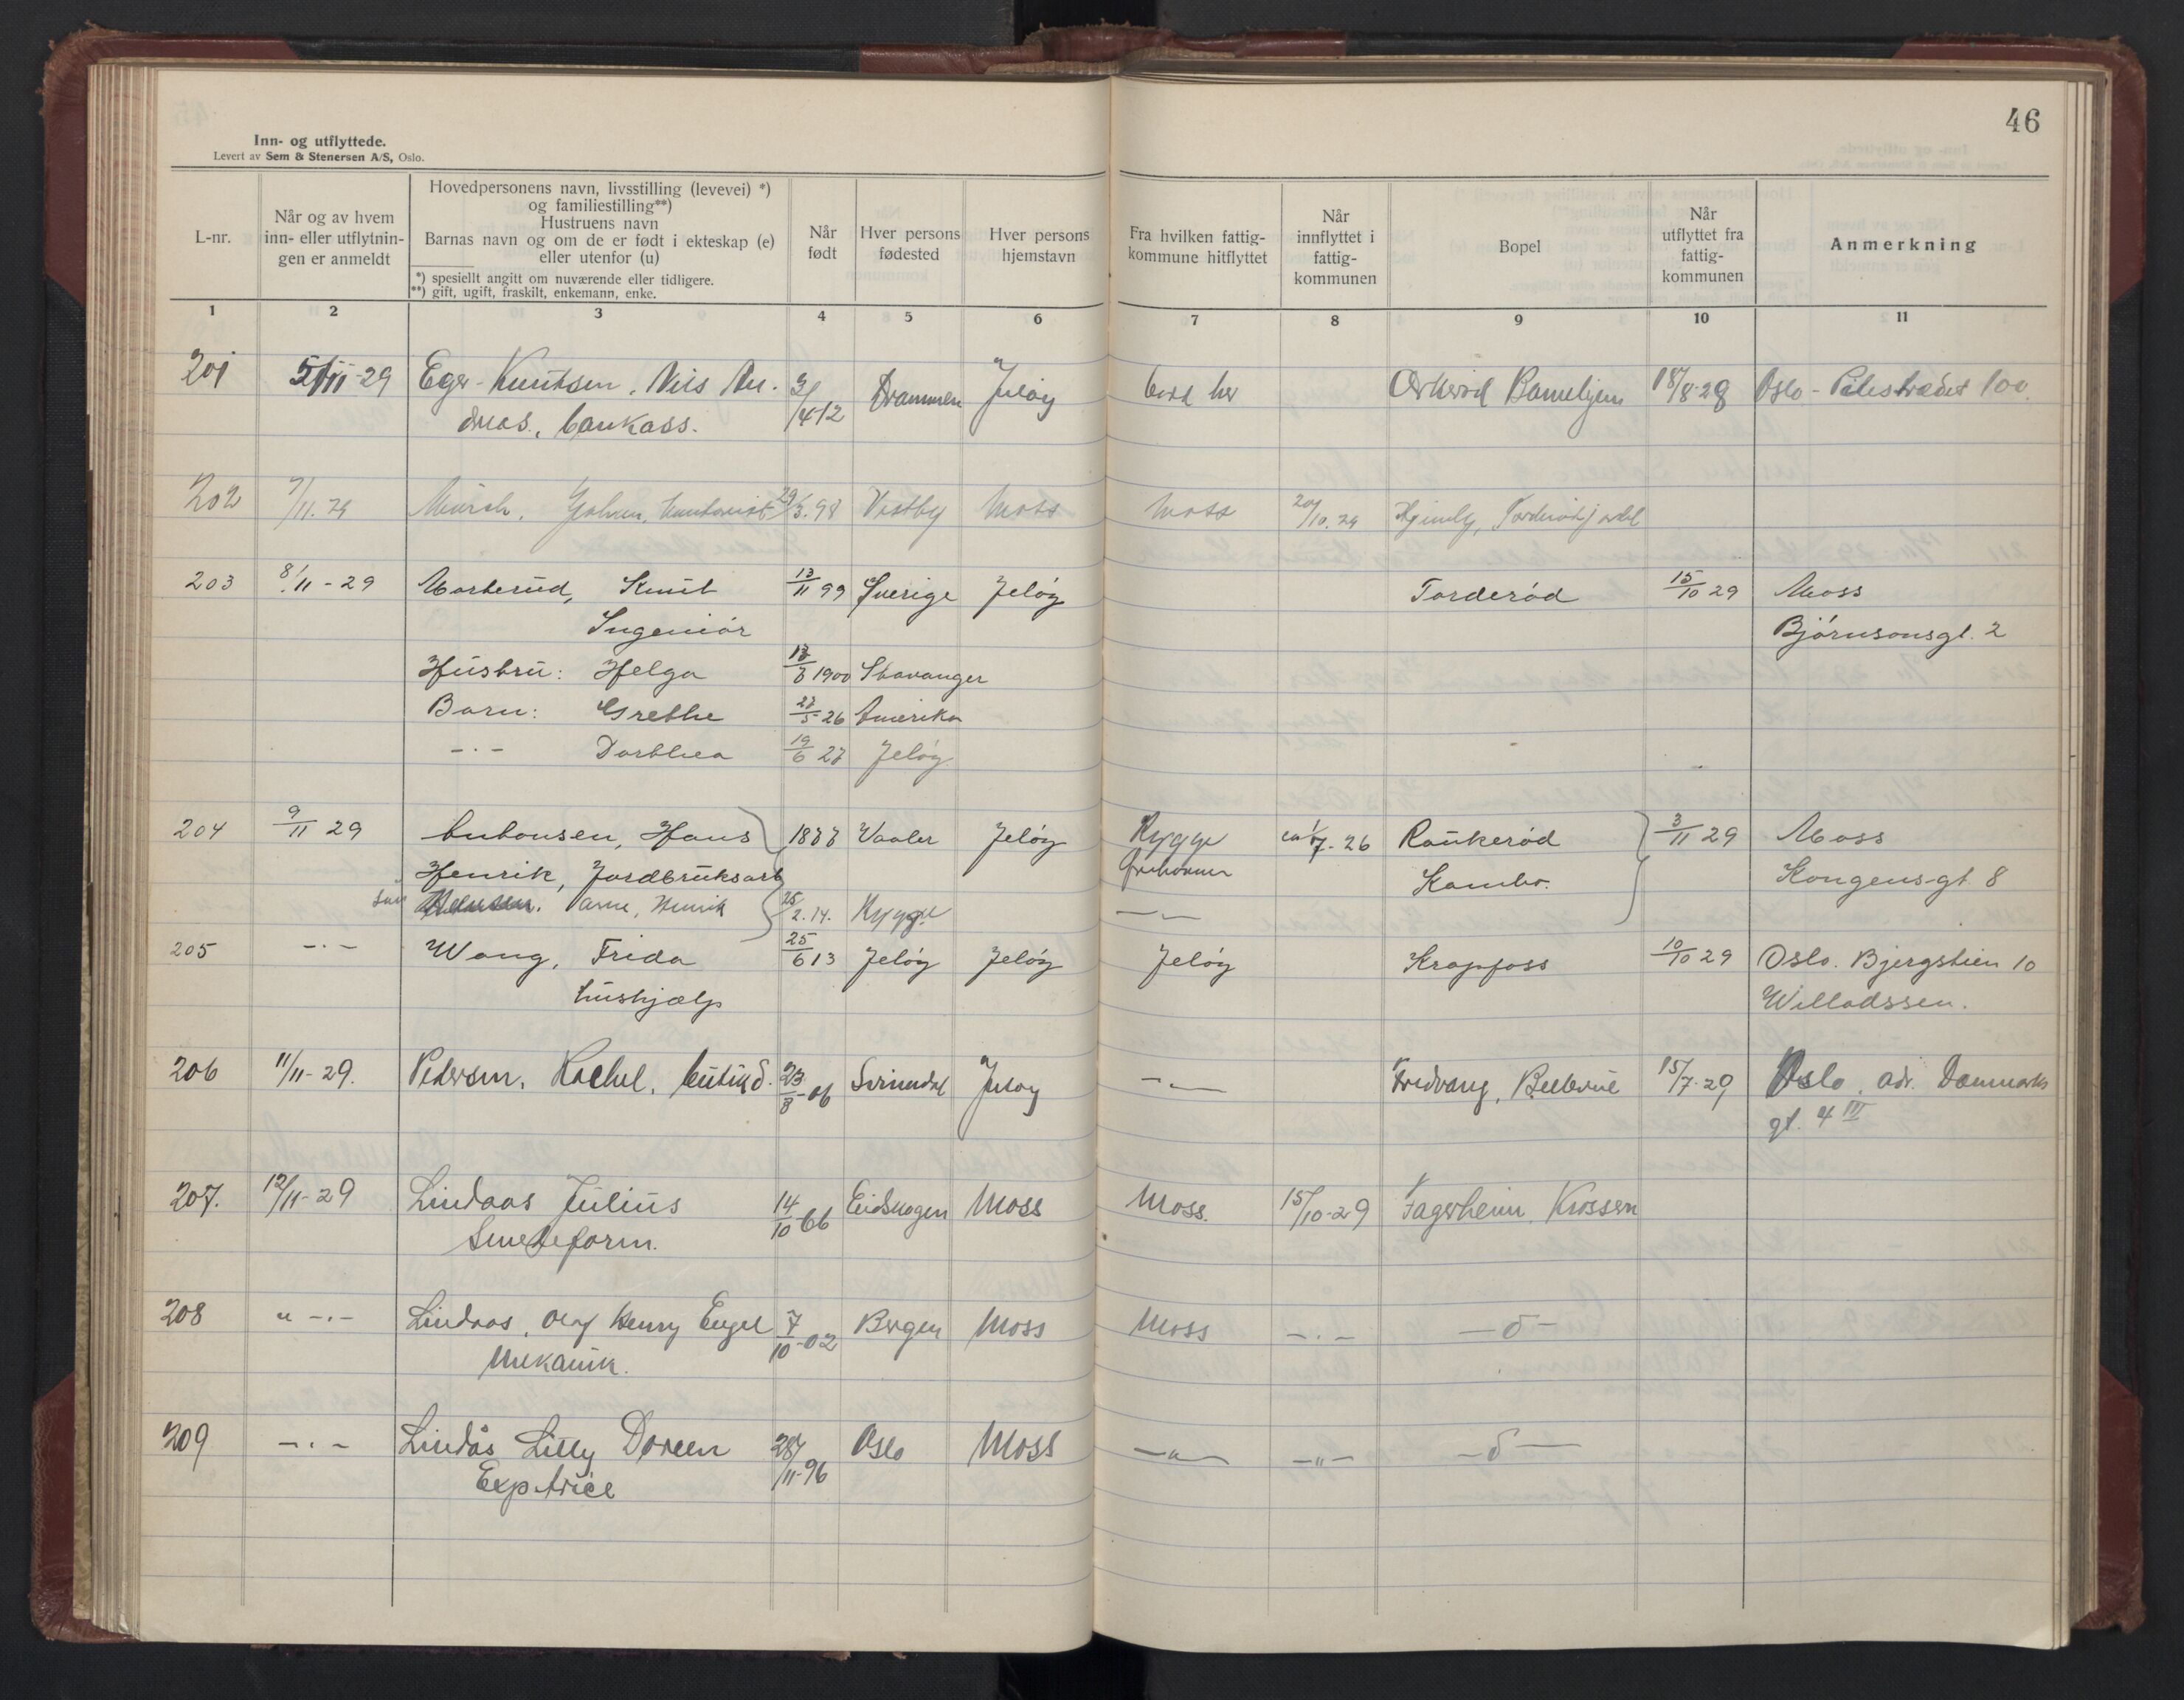 46
Inn- og utflyttede.
Levert av Sem & Stenersen A/S, Oslo.
L-nr.
Når og av hvem
inn- eller utflytnin-
gen er anmeldt
Hovedpersonens navn, livsstilling (levevei) *)
og familiestilling**)
Hustruens navn
Barnas navn og om de er født i ekteskap (e)
eller utenfor (u)
*) spesiellt angitt om nuværende eller tidligere.
**) gift, ugift, fraskilt, enkemann, enke.
Når
født
Hver persons
fødested
Hver persons
hjemstavn
Fra hvilken fattig-
kommune hitflyttet
Når
innflyttet i
fattig-
kommunen
Bopel
Når
utflyttet fra
fattig-
kommunen
Anmerkning
1 2 3 4 5 6 7 8 9 10 11
201 5/11-29 Eger-Knutsen, Nils An- 3/4 12 Drammen Jeløy bodd her 18/8-29 Oslo - Pilestrædet 100.
dreas, bankass.
202 7/11.29 Johan, Vestby Moss Moss /10.29
203 8/11-29 Morterud, Knut 13/11 99 Sverige Jeløy Torderød 15/10 29 Moss
Ingeniør Bjørnsonsgt. 2
Hustru: Helga 1900 Stavanger
Barn: Grethe 26 Amerika
-.- Dorthea 19/6 27 Jeløy
204 9/11 29 Antonsen, Hans Vaaler Jeløy Rygge 26 Raukerød 3/11 29 Moss
Henrik, Jordbruksarb Kambo. Kongens-gt 8
Arne, Henrik 2.14. Rygge -"-
205 -.- Wang, Frida 25/6 13 Jeløy Jeløy Jeløy Krapfoss 10/10 29 Oslo. Bjergstien 10
hushjælp Willadssen.
206 11/11-29. Pedersen, Rachel, butikd. 23/8-06 Svinndal Jeløy -"- Fredvang, Bellevue 15/7-29 Oslo, adr. Danmarks
gt. 4 III
207. 12/11-29 Lindaas Julius 14/10-66 Eidskogen Moss Moss. 15/10-29 Fagerheim, Krossern
Smedeform.
208 " -.- Lindaas, Olaf Henry Engel 7/10-02 Bergen Moss Moss -.- -o-
Mekanik.
209 -.- Lindås Lilly Doreen 28/11-96 Oslo Moss -"- -"- -o-
Exp.trice